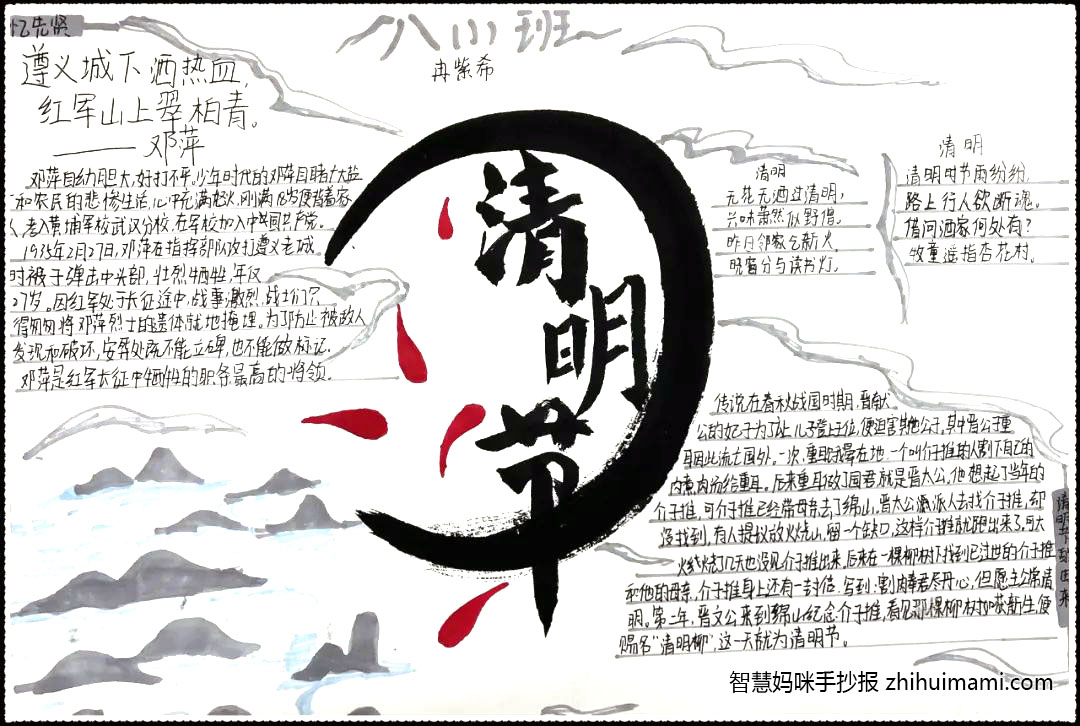 忆先贤
八(1)班
冉紫希
遵义城下洒热血,
红军山上翠柏青。
——邓萍
邓萍自幼胆大,好打不平。少年时代的邓萍目睹广大盐
和农民的悲惨生活,心中充满怒火,刚满
考入黄埔军校武汉分校,在军校加入中国共产党。
1935年2月27日,邓萍在指挥部队攻打遵义老城
时被子弹击中头部,壮烈牺牲,年仅
27岁。因红军处于长征途中,战事激烈,战士们只
得匆匆将邓萍烈士的遗体就地掩埋。为了防止被敌人
发现和破坏,安葬处既不能立碑,也不能做标记.
邓萍是红军长征中牺牲的职务最高的将领.
清明节
清明
无花无酒过清明,
兴味萧然似野僧。
昨日邻家乞新火,
晓窗分与读书灯。
清明
清明时节雨纷纷,
路上行人欲断魂。
借问酒家何处有?
牧童遥指杏花村。
传说在春秋战国时期,晋献
公的妃子为了让儿子登上王位,便迫害其他公子,其中晋公子重
耳因此流亡国外。一次,重耳饿晕在地,一个叫介子推的人割下自己的
肉煮肉汤给重耳。后来重耳做了国君就是晋太公,他想起了当年的
介子推,可介子推已经带母亲去了绵山,晋太公派人去找介子推,却
没找到,有人提议放火烧山,留一个缺口,这样介子推就跑出来了,可大
火烧了四天也没见介子推出来,后来在一棵柳树下找到已过世的介子推
和他的母亲,介子推身上还有一封信,写到:割肉奉君尽丹心,但愿主公常清
明。第二年,晋文公来到绵山纪念介子推,看见那棵柳树如获新生,便
赐名"清明柳",这一天就为清明节。
清明节的由来
智慧妈咪手抄报 zhihuimami.com